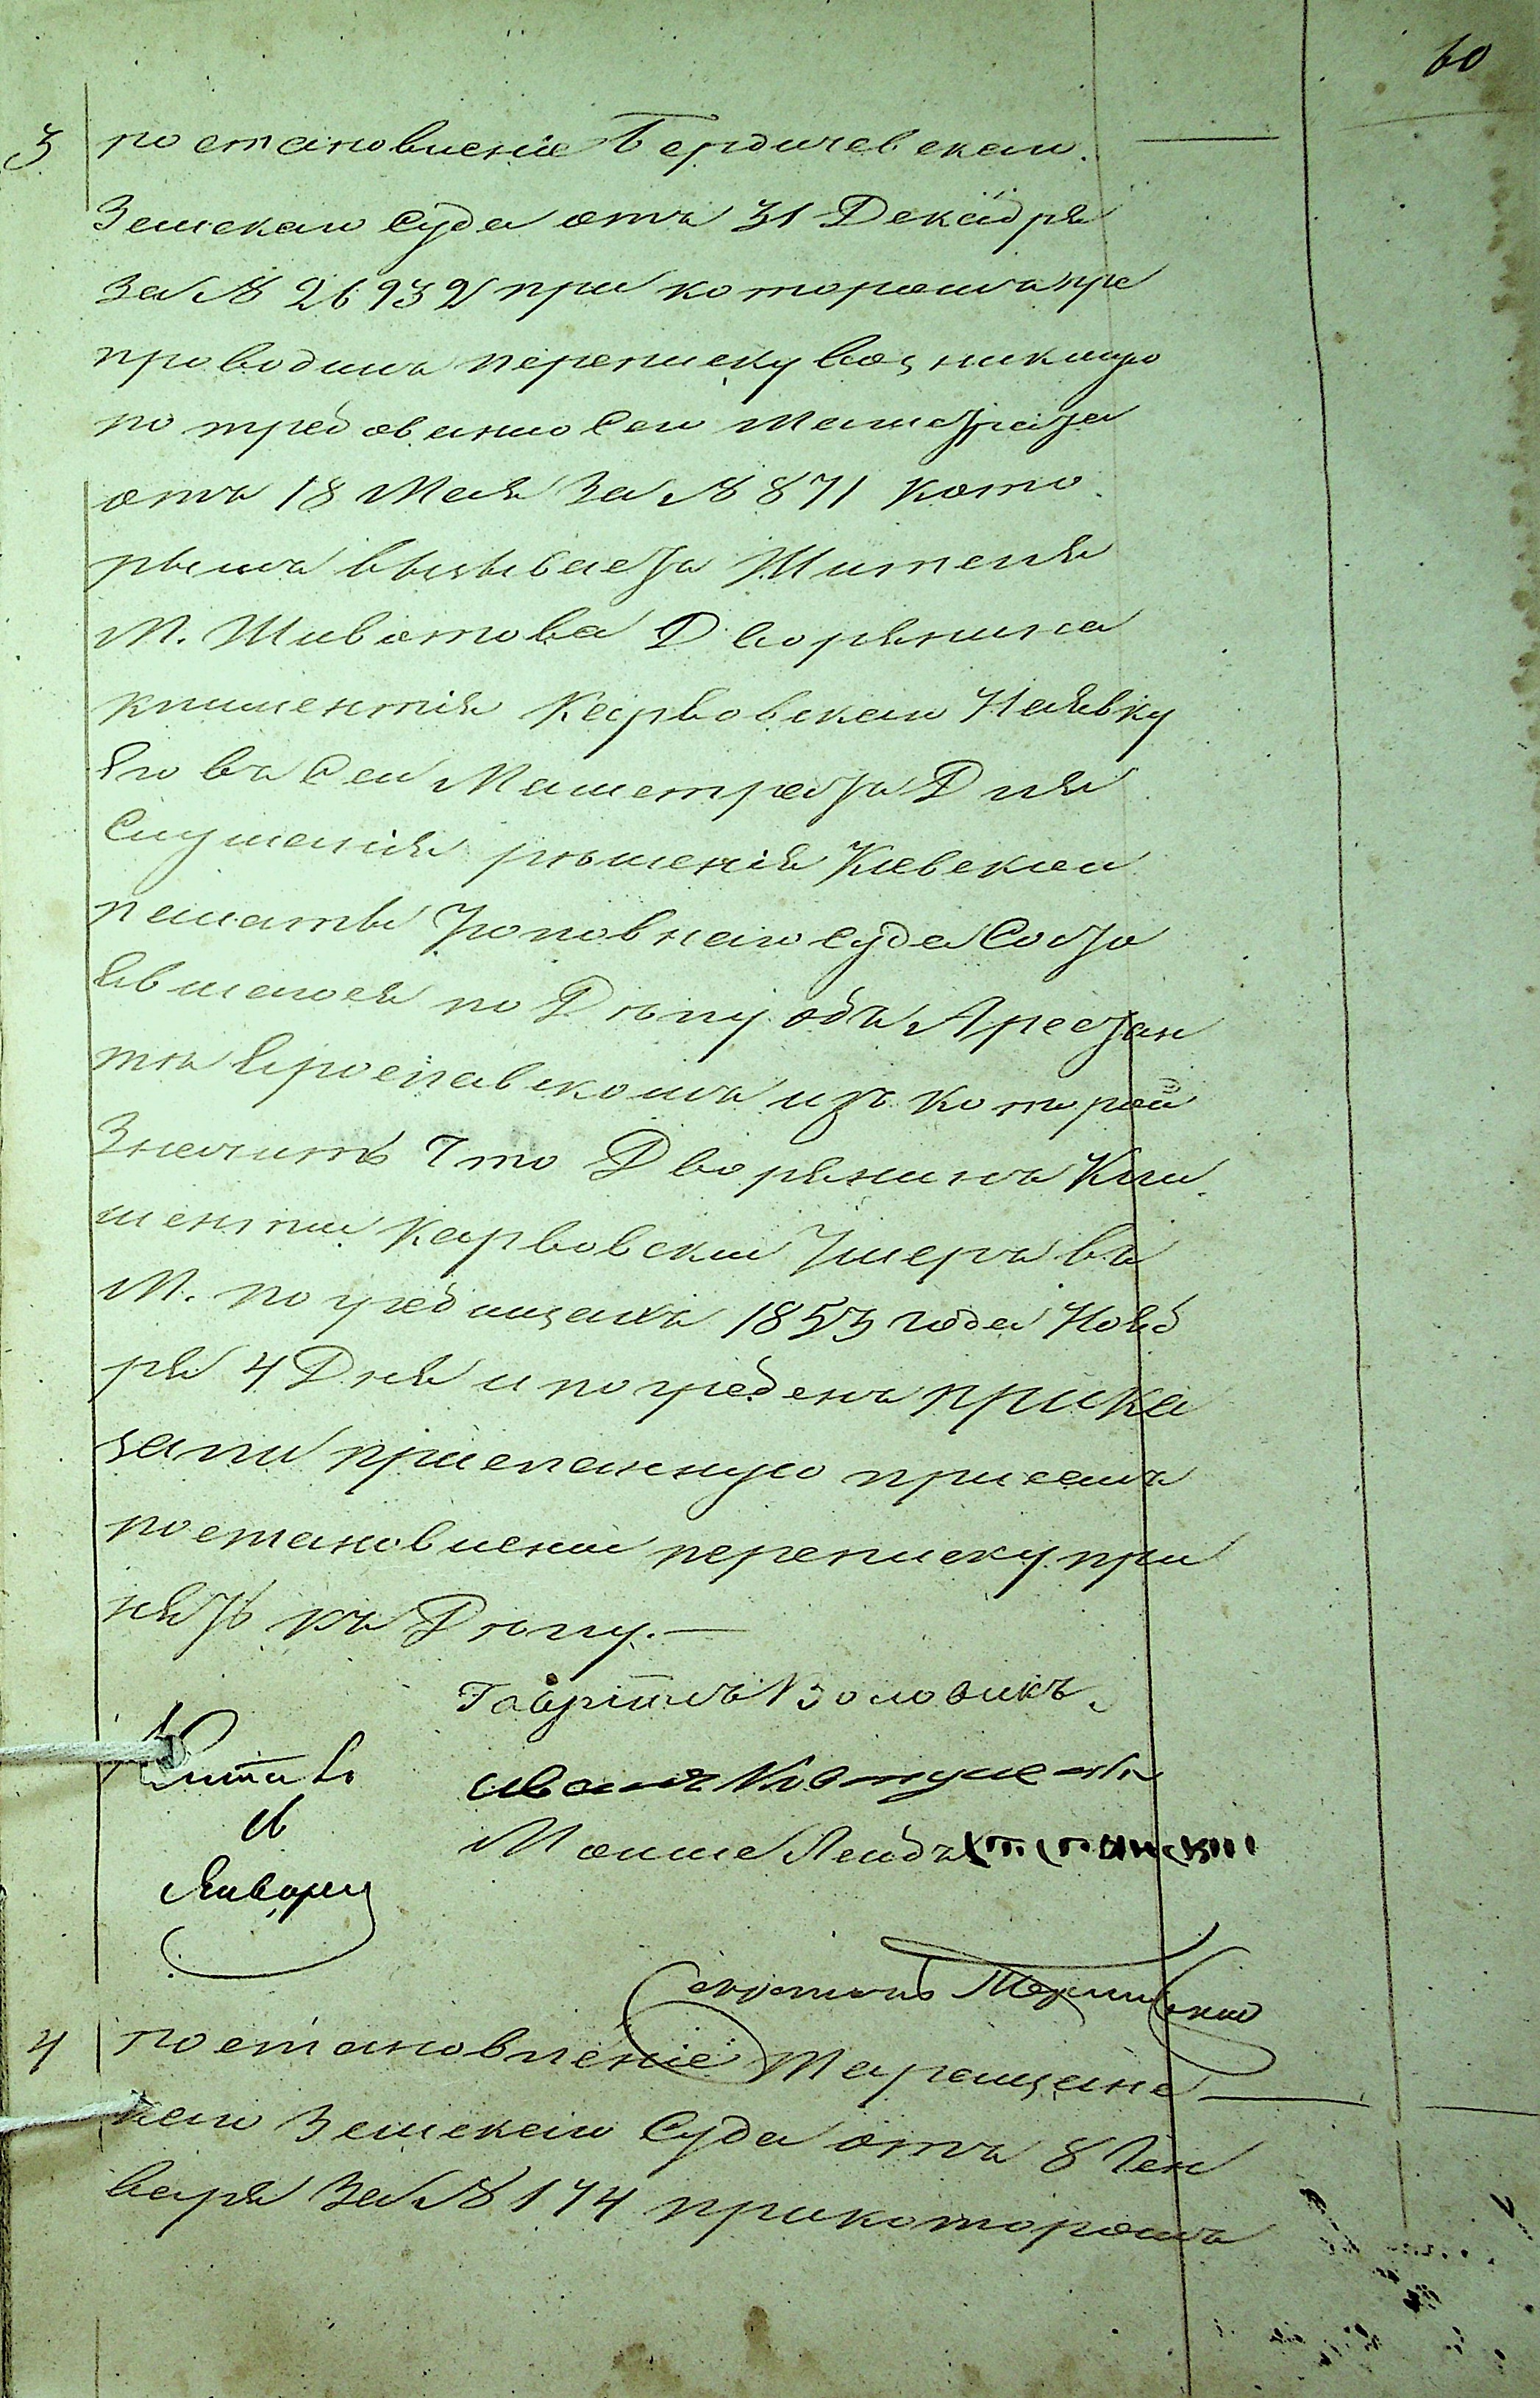 60
3 постановленіе Бердичевскаго
Земскаго Суда отъ 31 Декабря
за № 26932 при которомъ пре
проводилъ переписку возникшую
по требованію сего Магистрата
отъ 18 Мая за № 871 кото
рымъ вызывается Жителя
М. Животова Дворянина
Климентія Карвовскаго Наявку
Его въ Сей Магистратъ Для
Слушанія рѣшенія Кіевской
палаты Уголовнаго суда Состо
явшагося по Дѣлу объ Арестан
тѣ Ярославскомъ изъ которой
Значитъ Что Дворянинъ Кли
ментій Карвовскій Умеръ въ
М. Погребищахъ 1853 года Нояб
ря 4 Дня и погребенъ прика
зали присланную присемъ
постановленіи переписку при
нять къ Дѣлу. —
Гавріилъ Воловикъ.
Читалъ Иванъ Ковтуненко
Мошко Лейбъ
Января
Секретарь
4 постановленіе Таращанс
каго Земскаго Суда отъ 8 Ген
варя За № 174 прикоторомъ